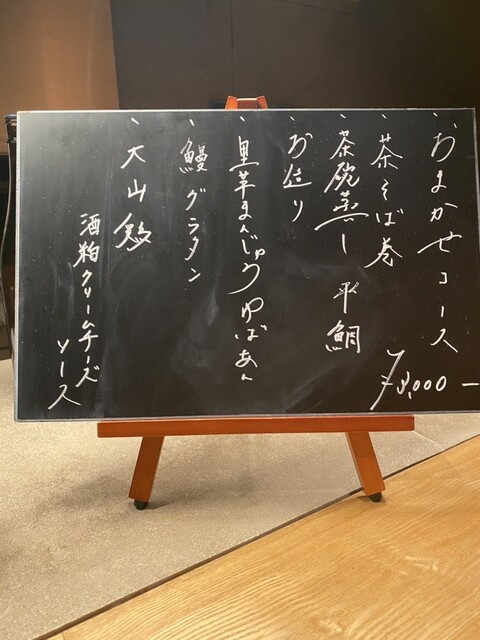 おまかせコース
¥8,000-
、茶そば巻
、茶碗蒸し 平鯛
、お造り
、里芋まんじゅうゆばあん
、鰻グラタン
、大山鶏
酒粕クリームチーズ
ソース